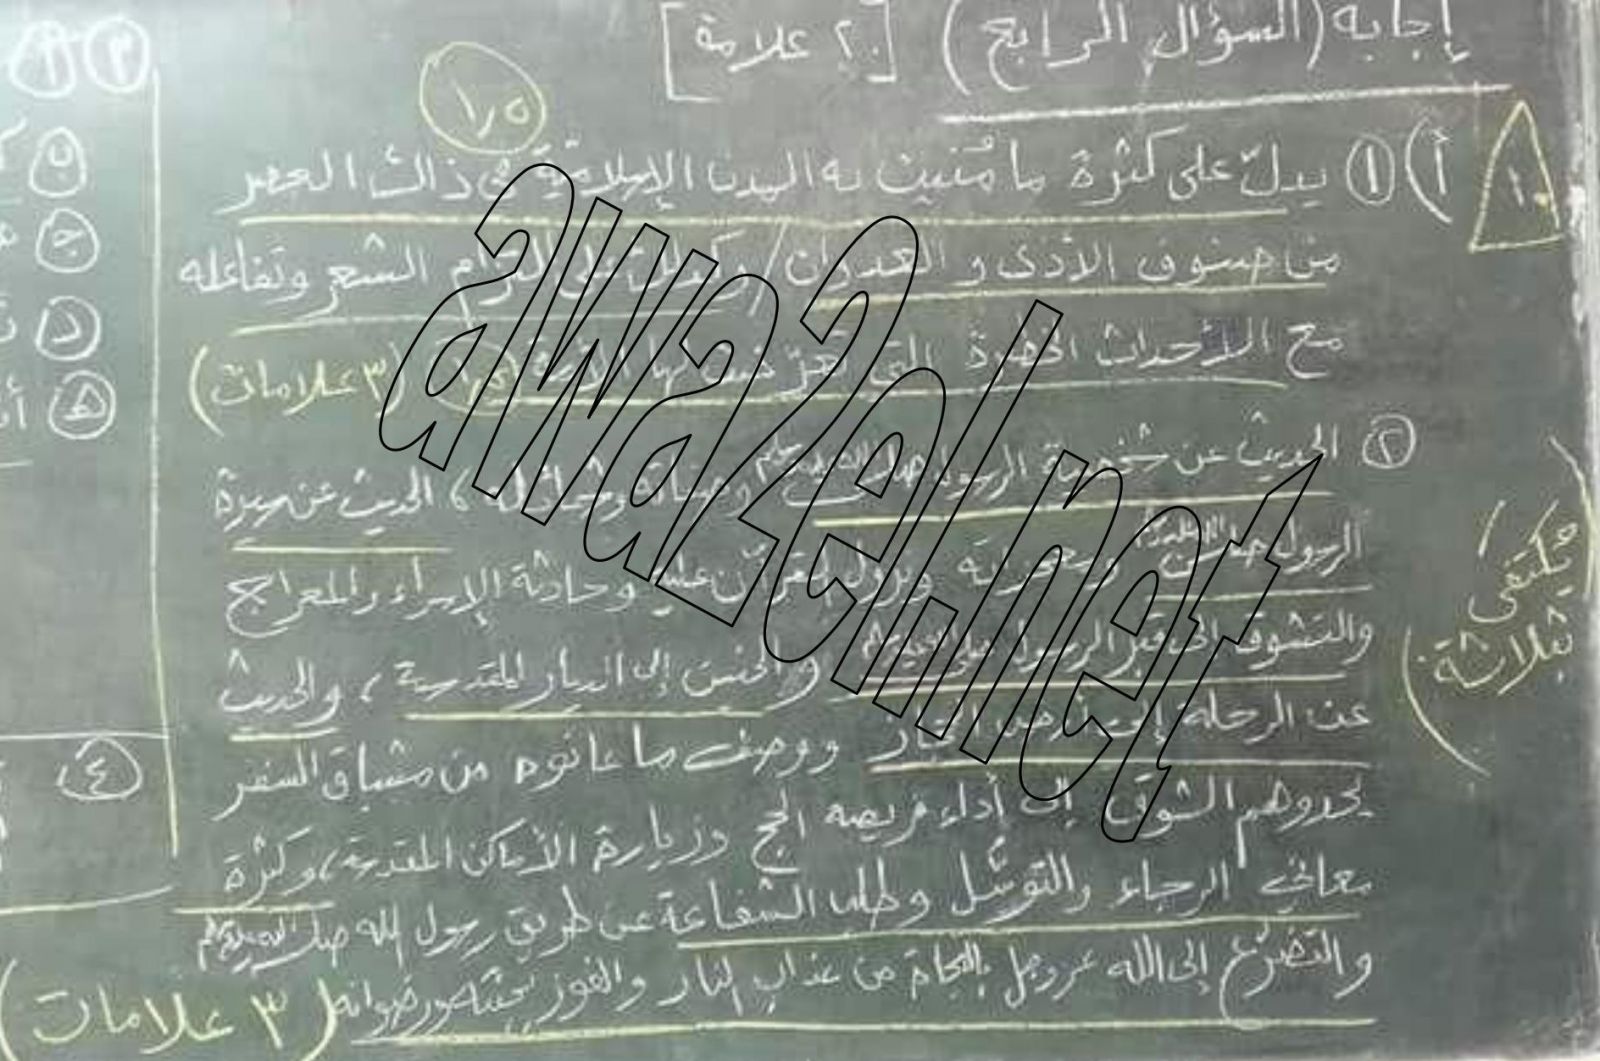 إجابة (السؤال الرابع) [٢٠ علامة]
١٠
١,٥
أ) ① يدلّ على كثرة ما مُنيت به المدن الإسلامية في ذاك العصر
من صنوف الأذى و العدوان / التزام الشعر وتفاعله
مع الأحداث التي (٣ علامات)
② الحديث عن شخصية الرسول صلى الله عليه وسلم ، الحديث عن سيرة
الرسول ونزول القرآن عليه وحادثة الإسراء والمعراج
والتشوق إلى قبر الرسول والحنين إلى الديار المقدسة ، والحديث
عن الرحلة إلى ووصف ما عانوه من مشاق السفر
يحدوهم الشوق إلى أداء فريضة الحج وزيارة الأماكن المقدسة ، وكثرة
معاني الرجاء والتوسّل وطلب الشفاعة عن طريق رسول الله صلى الله عليه وسلم
والتضرّع إلى الله عز وجل بالنجاة من عذاب النار والفوز بجنته ورضوانه (٣ علامات)
(يُكتفى
بثلاثة)
③ أ
ب
ج
د
هـ
④
awa2el.net